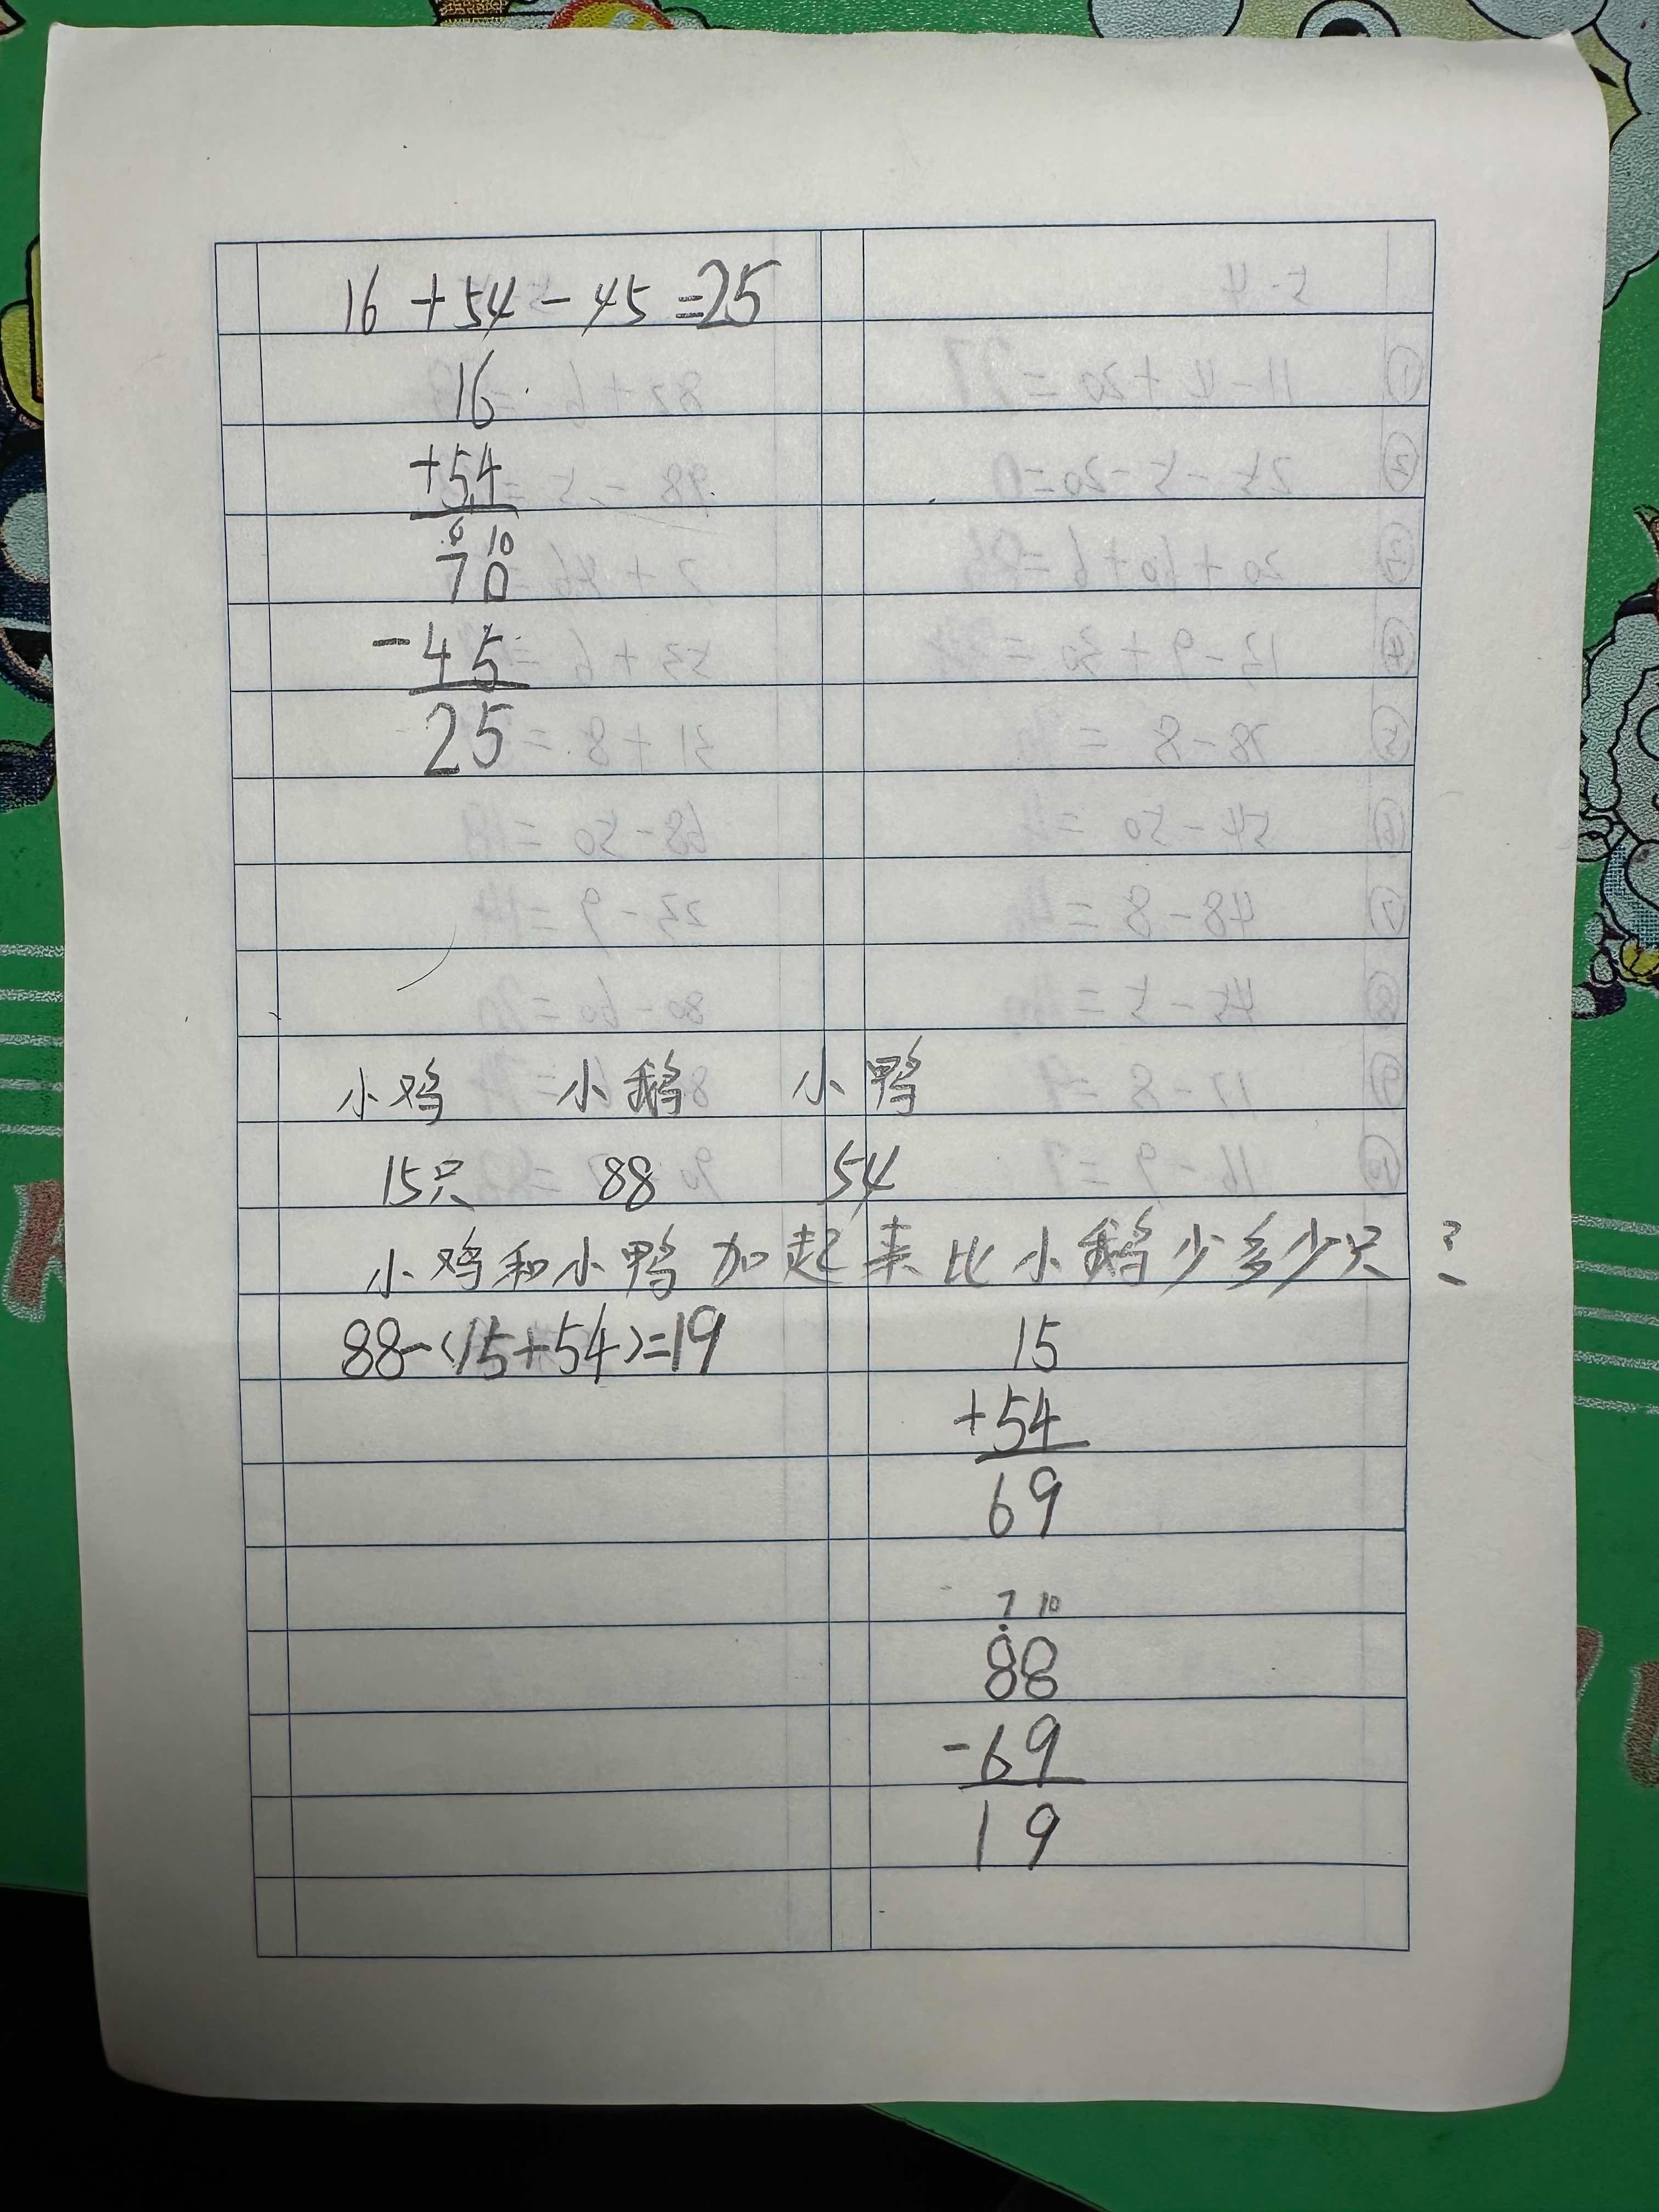 16 + 54 - 45 = 25
16
+54
6 10
70
-45
25
小鸡 小鹅 小鸭
15只 88 54
小鸡和小鸭加起来比小鹅少多少只?
88-(15+54)=19
15
+54
69
7 10
88
-69
19